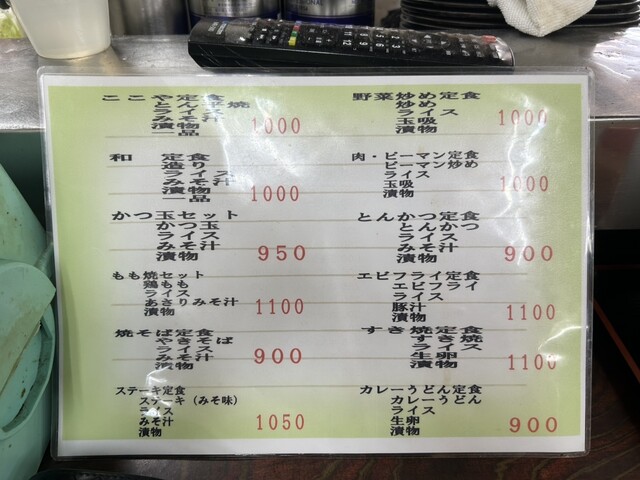 ここや定食
とん平焼
ライス
みそ汁
漬物
一品
1000
和 定食
造り
ライス
みそ汁
漬物
一品
1000
かつ玉セット
かつ玉
ライス
みそ汁
漬物
950
もも焼セット
鶏もも
ライス
あさりみそ汁
漬物
1100
焼そば定食
やきそば
ライス
みそ汁
漬物
900
ステーキ定食
ステーキ(みそ味)
ライス
みそ汁
漬物
1050
野菜炒め定食
炒め
ライス
玉吸
漬物
1000
肉・ピーマン定食
ピーマン炒め
ライス
玉吸
漬物
1000
とんかつ定食
とんかつ
ライス
みそ汁
漬物
900
エビフライ定食
エビフライ
ライス
豚汁
漬物
1100
すき焼定食
すき焼
ライス
生卵
漬物
1100
カレーうどん定食
カレーうどん
ライス
生卵
漬物
900